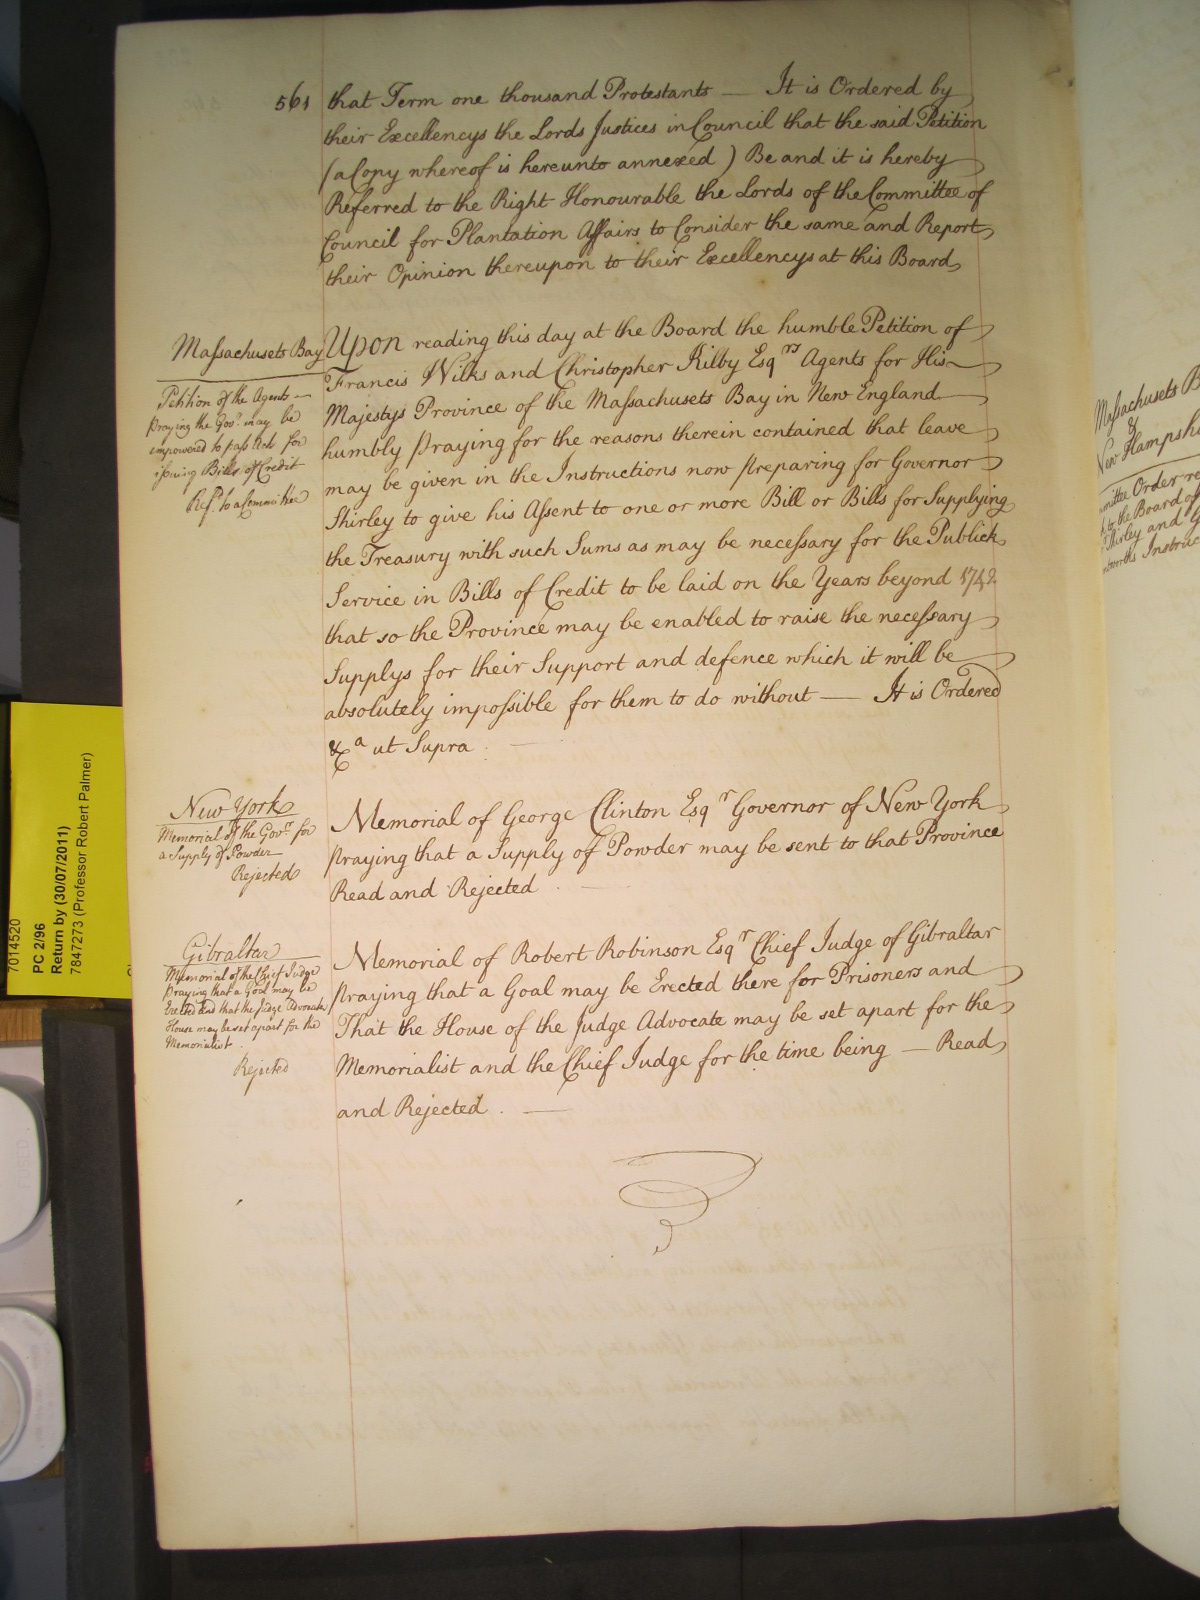 561
that Term one thousand Protestants — It is Ordered by
their Excellencys the Lords Justices in Council that the said Petition
(a Copy whereof is hereunto annexed) Be and it is hereby
Referred to the Right Honourable the Lords of the Committee of
Council for Plantation Affairs to Consider the same and Report
their Opinion thereupon to their Excellencys at this Board
Massachusets Bay
Petition of the Agents —
praying the Govr. may be
impowered to pass Acts for
issuing Bills of Credit
Ref.d to a Committee
Upon reading this day at the Board the humble Petition of
Francis Wilks and Christopher Kilby Esqrs Agents for His
Majestys Province of the Massachusets Bay in New England
humbly praying for the reasons therein contained that leave
may be given in the Instructions now preparing for Governor
Shirley to give his Assent to one or more Bill or Bills for Supplying
the Treasury with such Sums as may be necessary for the Publick
Service in Bills of Credit to be laid on the Years beyond 1742
that so the Province may be enabled to raise the necessary
Supplys for their Support and defence which it will be
absolutely impossible for them to do without — It is Ordered
&a ut Supra . —
New York
Memorial of the Govr. for
a Supply of Powder
Rejected
Memorial of George Clinton Esqr Governor of New York
praying that a Supply of Powder may be sent to that Province
Read and Rejected . —
Gibraltar
Memorial of the Chief Judge
praying that a Goal may be
Erected And that the Judge Advocates
House may be set apart for the
Memorialist .
Rejected
Memorial of Robert Robinson Esqr Chief Judge of Gibraltar
praying that a Goal may be Erected there for Prisoners and
That the House of the Judge Advocate may be set apart for the
Memorialist and the Chief Judge for the time being — Read
and Rejected . —
7014520
PC 2/96
Return by (30/07/2011)
7847273 (Professor Robert Palmer)
Massachusets B
&
New Hampshi
Order re
to the Board of
Shirley and G
Instruc